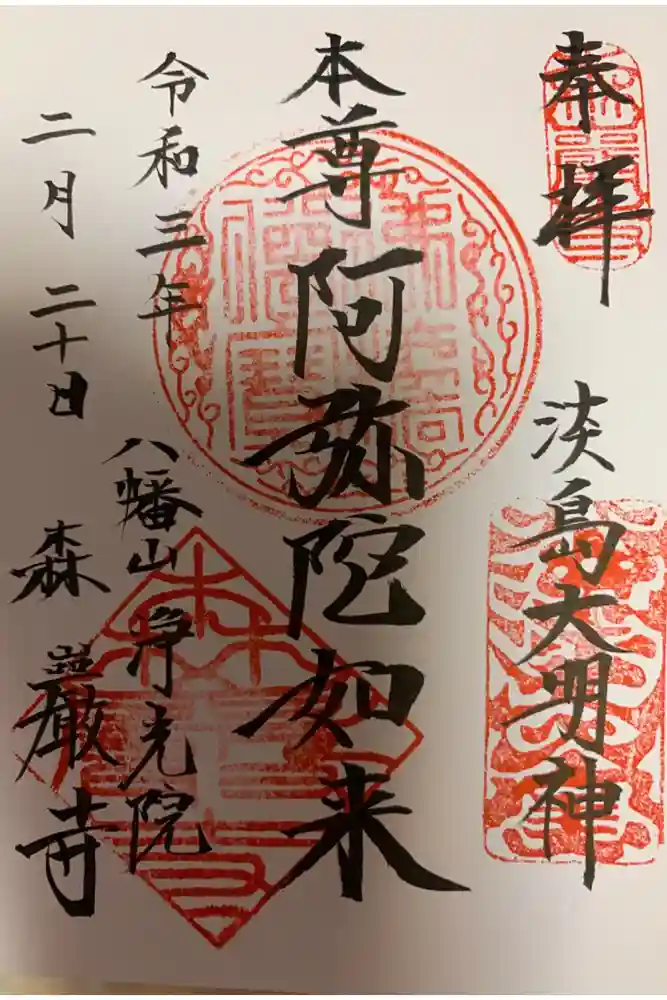 奉拝
淡島大明神
本尊阿弥陀如来
令和三年
二月二十日
八幡山浄光院
森巖寺